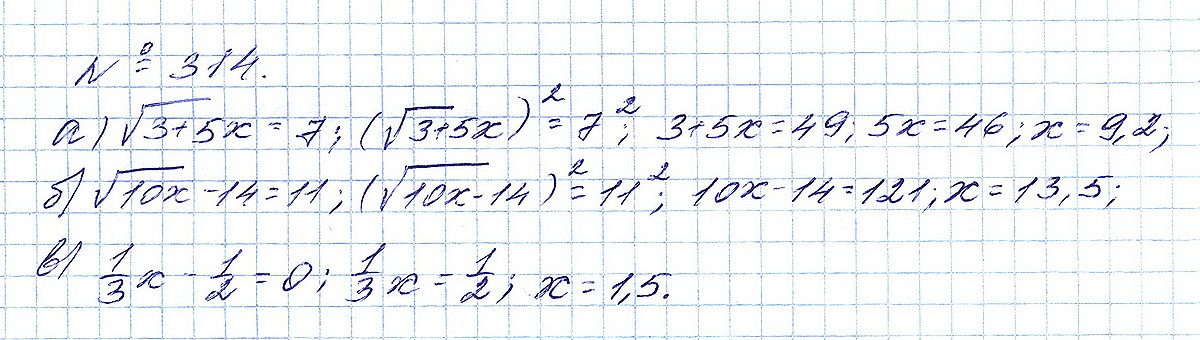 № 314.
а) √3+5x = 7; (√3+5x)² = 7²; 3+5x=49; 5x=46; x=9,2;
б) √10x-14=11; (√10x-14)²=11²; 10x-14=121; x=13,5;
в) 1/3 x - 1/2 = 0; 1/3 x = 1/2; x=1,5.